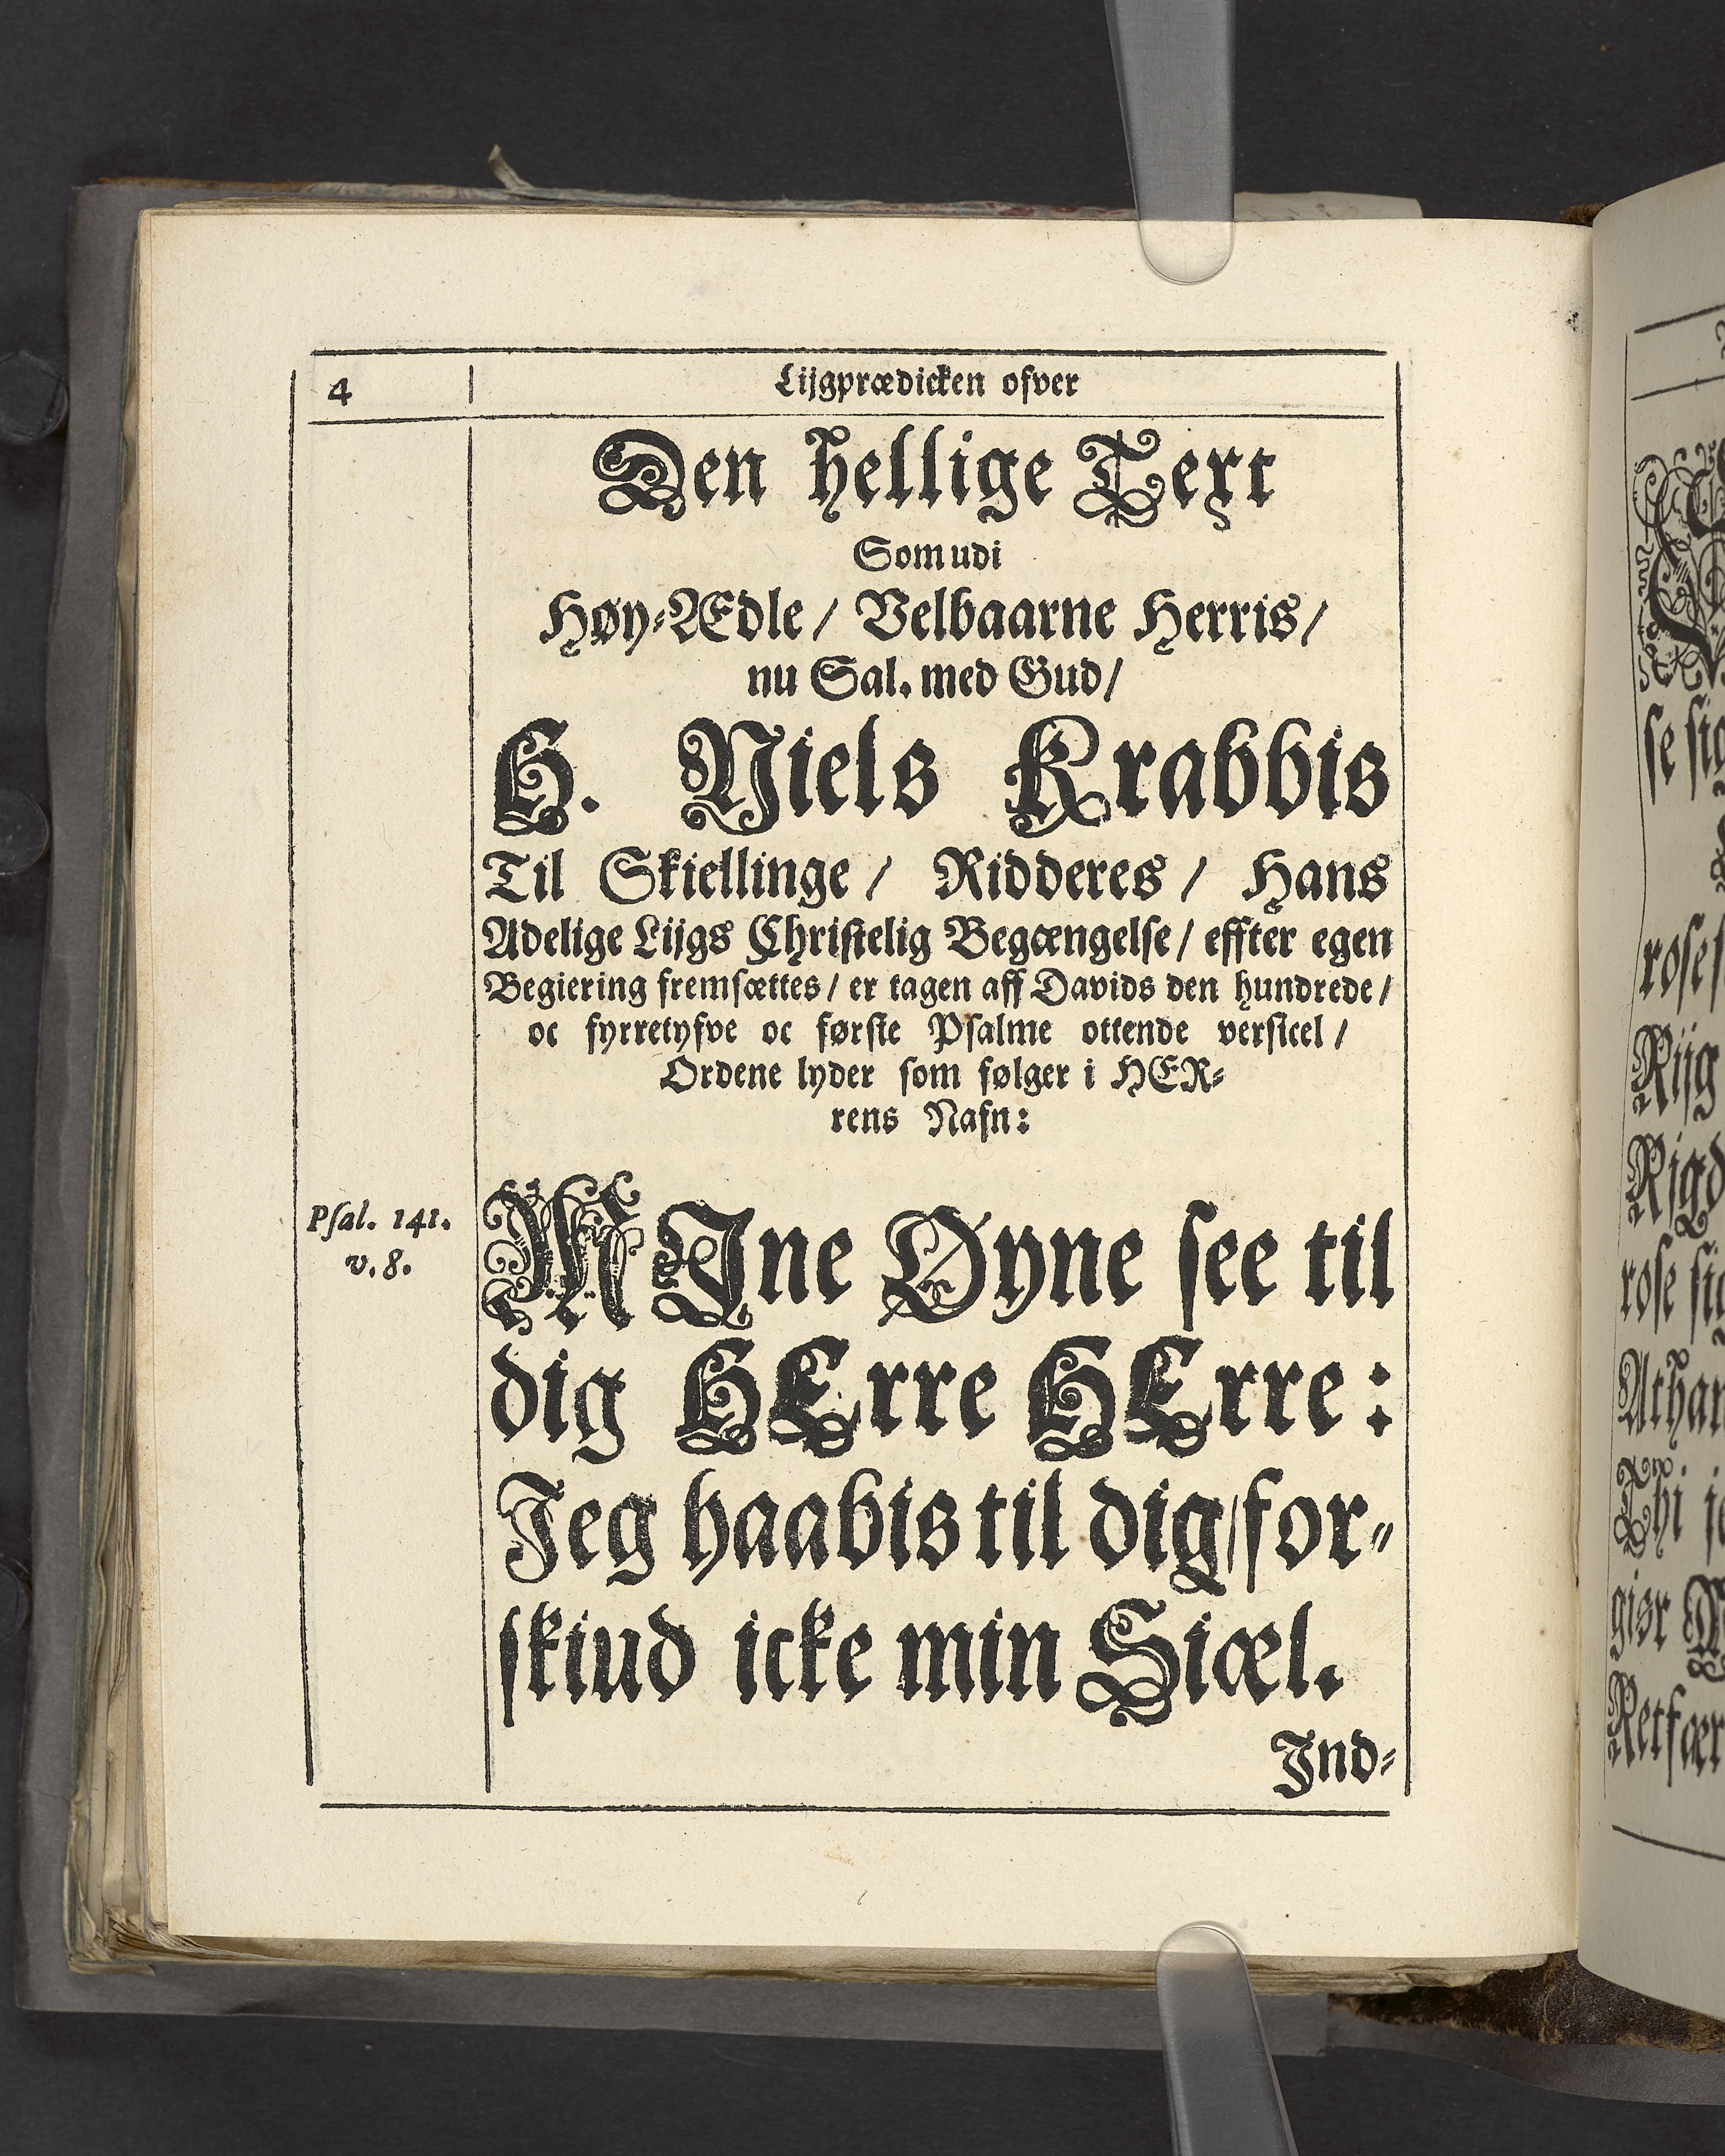 4
Lijgprædicken ofver
Den hellige Text
Som udi
Høy-Ædle / Velbaarne Herris /
nu Sal. med Gud /
H. Niels Krabbis
Til Skiellinge / Ridderes / Hans
Adelige Lijgs Christelig Begængelse / effter egen
Begiering fremsættes / er tagen aff Davids den hundrede /
oc fyrretyfve oc første Psalme ottende versicel /
Ordene lyder som følger i HER-
rens Nafn:
Psal. 141.
v. 8.
MJne Øyne see til
dig HErre HErre:
Jeg haabis til dig / for-
skiud icke min Siæl.
Ind-
se sig
Riig
Rigd
rose sig
Athan
Thi je
giør
Retfær